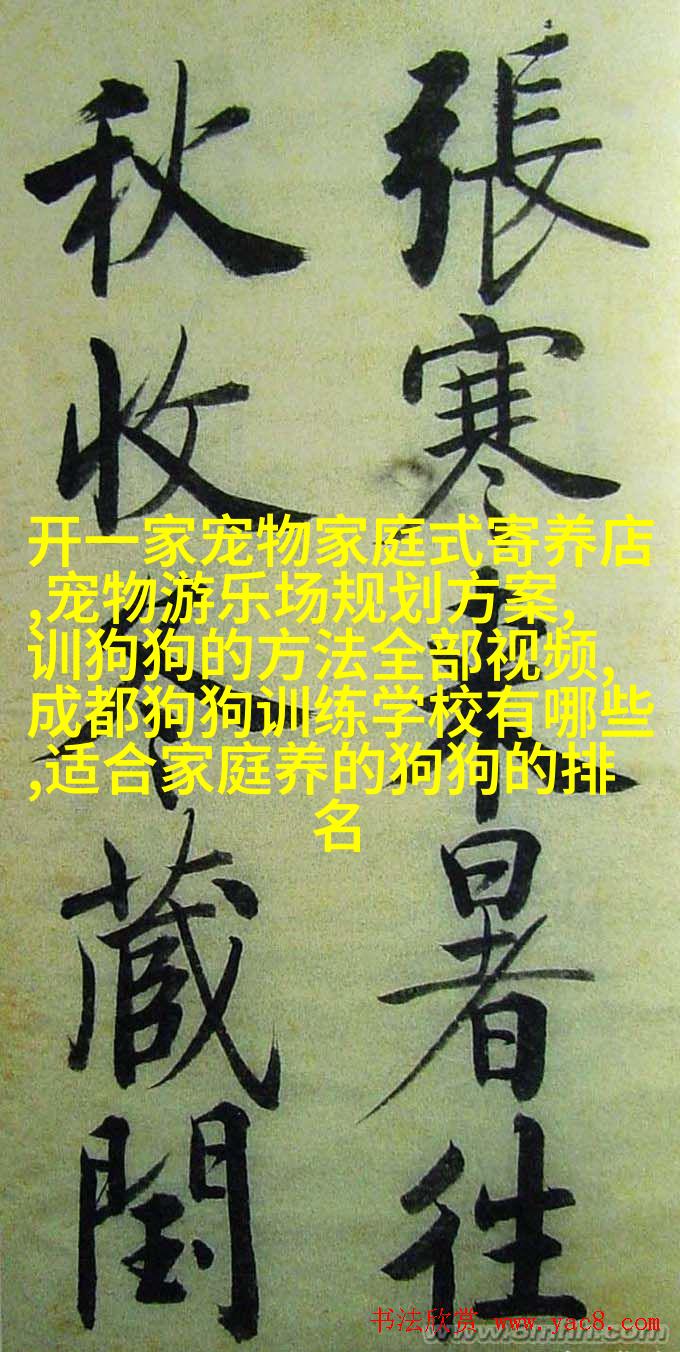 張寒暑往
秋收藏閏
开一家宠物家庭式寄养店
,宠物游乐场规划方案,
训狗狗的方法全部视频,
成都狗狗训练学校有哪些
,适合家庭养的狗狗的排
名
书法欣赏 www.yac8.com